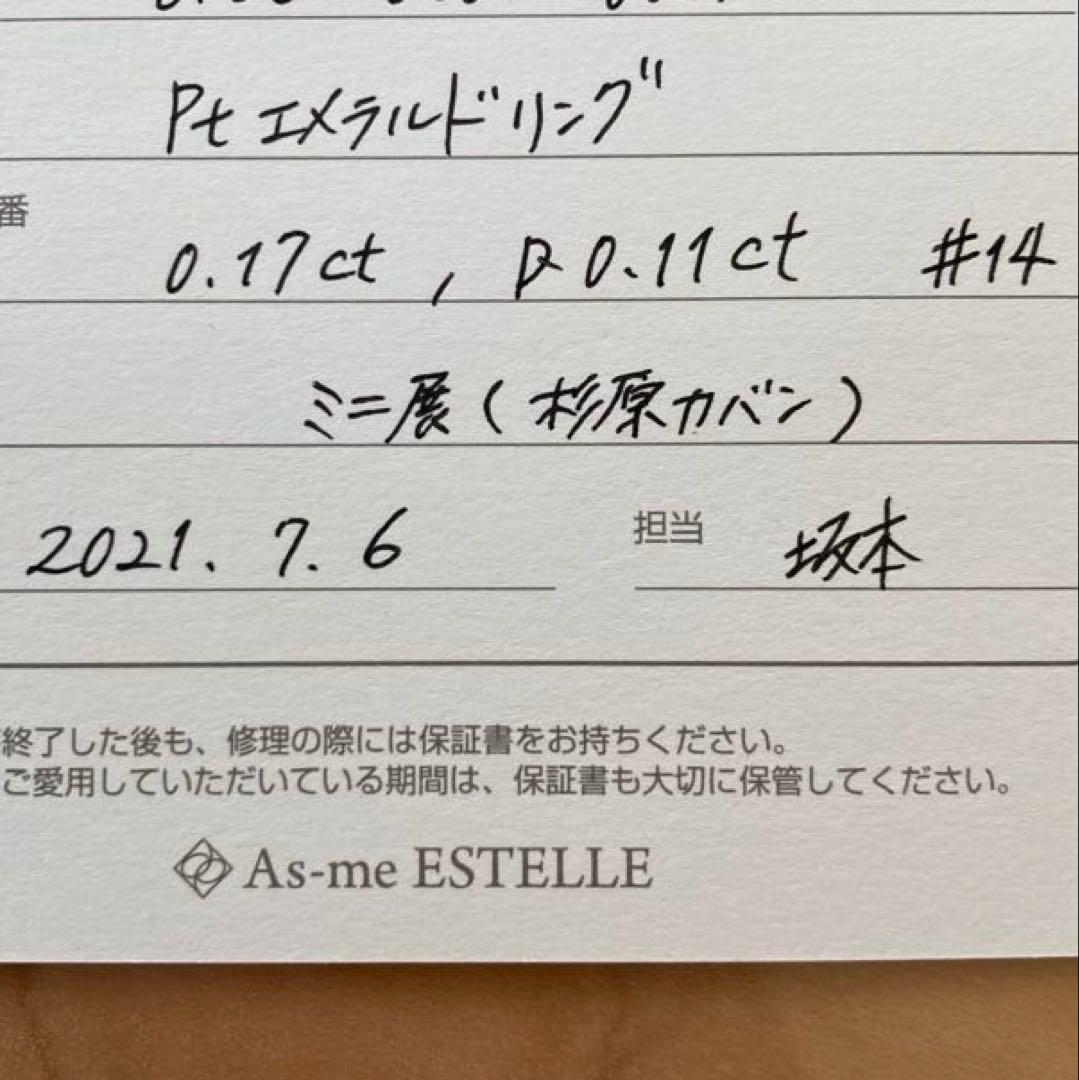 Pt エメラルドリング
番
0.17ct , D 0.11ct #14
ミニ展(杉原カバン)
2021. 7. 6 担当 坂本
終了した後も、修理の際には保証書をお持ちください。
ご愛用していただいている期間は、保証書も大切に保管してください。
As-me ESTELLE